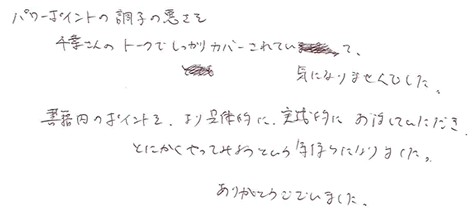 パワーポイントの調子の悪さを
千葉さんのトークでしっかりカバーされていて、
気になりませんでした。
書籍内のポイントを、より具体的に、実践的にお話していただき、
とにかくやってみようという気持ちになりました。
ありがとうございました。